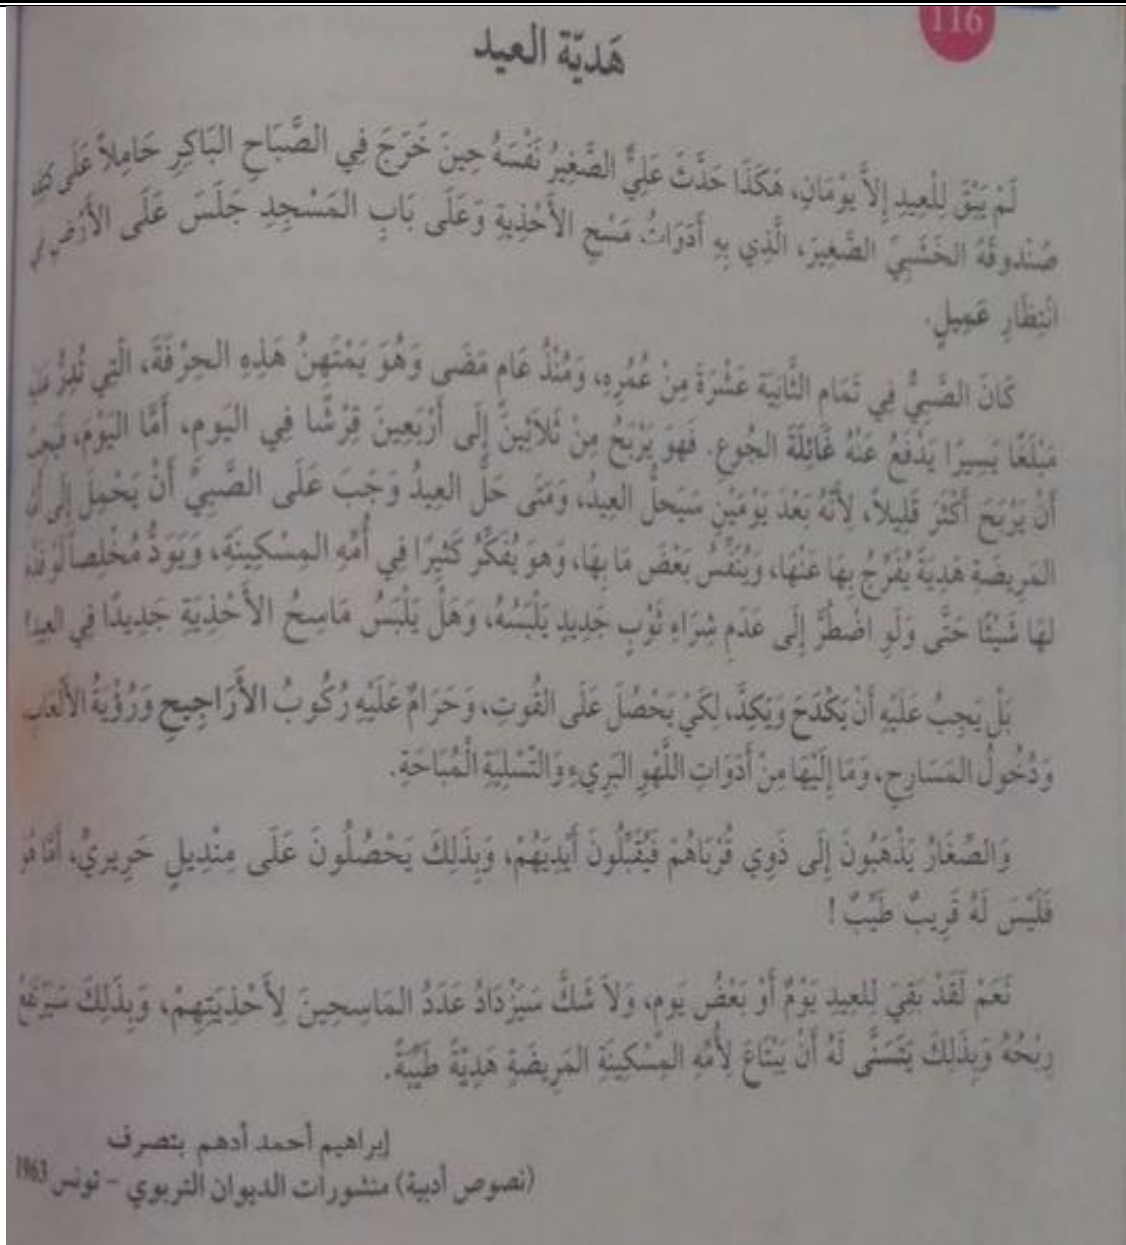 116
هَديّة العيد
لَمْ يَبْقَ لِلْعِيدِ إِلاَّ يَوْمَانِ، هَكَذَا حَدَّثَ عَلِيٌّ الصَّغِيرُ نَفْسَهُ حِينَ خَرَجَ فِي الصَّبَاحِ البَاكِرِ حَامِلاً عَلَى
صُنْدوقَهُ الخَشَبِيَّ الصَّغِيرَ، الَّذِي بِهِ أَدَوَاتُ مَسْحِ الأَحْذِيَةِ وَعَلَى بَابِ المَسْجِدِ جَلَسَ عَلَى الأَرْضِ فِي
انْتِظَارِ عَمِيلٍ.
كَانَ الصَّبِيُّ فِي تَمَامِ الثَّانِيَة عَشْرَةَ مِنْ عُمُرِهِ، وَمُنْذُ عَامٍ مَضَى وَهُوَ يَمْتَهِنُ هَذِهِ الحِرْفَةَ، الَّتِي تُدِرُّ عَلَيْهِ
مَبْلَغًا يَسِيرًا يَدْفَعُ عَنْهُ غَائِلَةَ الجُوعِ. فَهوَ يَرْبَحُ مِنْ ثَلاَثِينَ إِلَى أَرْبَعِينَ قِرْشًا فِي اليَومِ، أَمَّا اليَوْمَ، فَيَجِبُ
أَنْ يَرْبَحَ أَكْثَرَ قَلِيلاً، لِأَنَّهُ بَعْدَ يَوْمَيْنِ سَيَحلُّ العِيدُ، وَمَتَى حَلَّ العِيدُ وَجَبَ عَلَى الصَّبِيِّ أَنْ يَحْمِلَ إِلَى أُمِّهِ
المَرِيضَةِ هَدِيَةً يُفَرِّجُ بِهَا عَنْهَا، وَيُنَفِّسُ بَعْضَ مَا بِهَا، وَهوَ يُفَكِّرُ كَثِيرًا فِي أُمِّهِ المِسْكِينَةِ، وَيَوَدُّ مُخْلِصاً لَوْ قَدَّمَ
لَهَا شَيْئًا حَتَّى وَلَوِ اضْطُرَّ إِلَى عَدَمِ شِرَاءِ ثَوْبٍ جَدِيدٍ يَلْبَسُهُ، وَهَلْ يَلْبَسُ مَاسِحُ الأَحْذِيَةِ جَدِيدًا فِي العِيدِ!
بَلْ يَجِبُ عَلَيْهِ أَنْ يَكْدَحَ وَيَكِدَّ، لِكَيْ يَحْصُلَ عَلَى القُوتِ، وَحَرَامٌ عَلَيْهِ رُكُوبُ الأَرَاجِيحِ وَرُؤْيَةُ الأَلْعَابِ
وَدُخُولُ المَسَارِحِ، وَمَا إِلَيْهَا مِنْ أَدَوَاتِ اللَّهْوِ البَرِيءِ وَالتَّسْلِيَةِ الْمُبَاحَةِ.
وَالصِّغَارُ يَذْهَبُونَ إِلَى ذَوِي قُرْبَاهُمْ فَيُقَبِّلُونَ أَيْدِيَهُمْ، وَبِذَلِكَ يَحْصُلُونَ عَلَى مِنْدِيلٍ حَرِيرِيٍّ، أَمَّا هُوَ
فَلَيْسَ لَهُ قَرِيبٌ طَيِّبٌ !
نَعَمْ لَقَدْ بَقِيَ لِلعِيدِ يَوْمٌ أَوْ بَعْضُ يَومٍ، وَلاَ شَكَّ سَيَزْدَادُ عَدَدُ المَاسِحِينَ لِأَحْذِيَتِهِمْ، وَبِذَلِكَ سَيَرْتَفِعُ
رِبْحُهُ وَبِذَلِكَ يَتَسَنَّى لَهُ أَنْ يَبْتَاعَ لِأُمِّهِ المِسْكِينَةِ المَرِيضَةِ هَدِيّةً طَيِّبَةً.
إبراهيم أحمد أدهم بتصرف
(نصوص أدبية) منشورات الديوان التربوي - تونس 1963